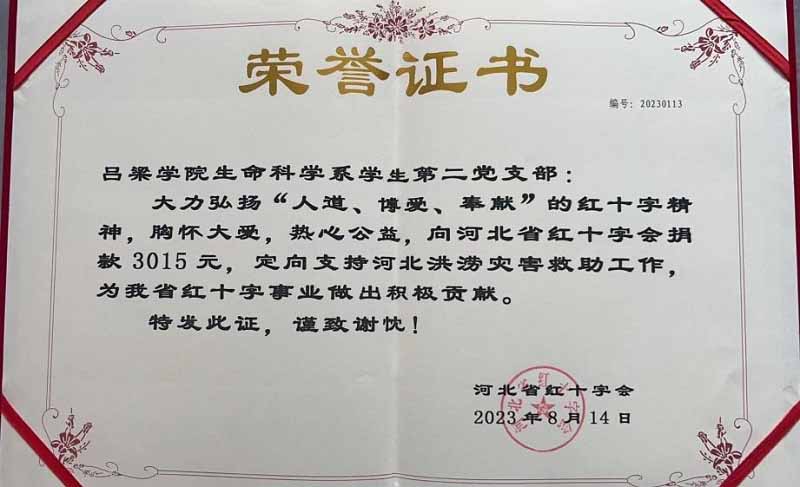 荣誉证书
编号：20230113
吕梁学院生命科学系学生第二党支部：
大力弘扬“人道、博爱、奉献”的红十字精
神，胸怀大爱，热心公益，向河北省红十字会捐
款 3015 元，定向支持河北洪涝灾害救助工作，
为我省红十字事业做出积极贡献。
特发此证，谨致谢忱！
河北省红十字会
2023 年 8 月 14 日
河北省红十字会